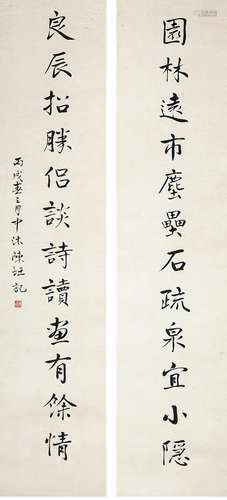 園林遠市塵壘石疏泉宜小隱
良辰招勝侶談詩讀畫有餘情
丙戌春三月中沐陳記